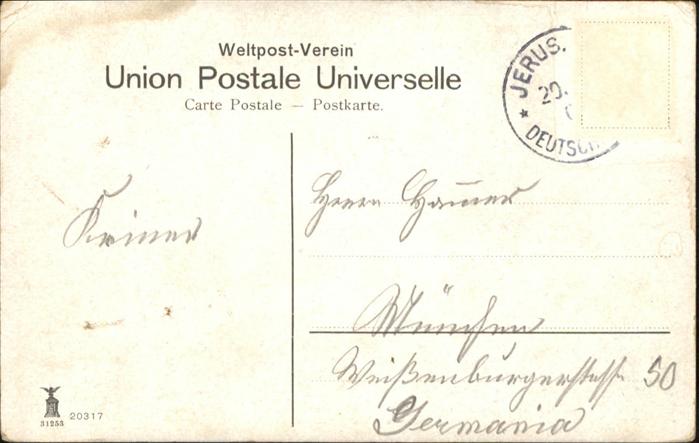 Weltpost-Verein
Union Postale Universelle
Carte Postale — Postkarte.
JERUS.
20.
* DEUTSCH
Kriner
Herrn Hammer
München
Weißenburgerstraße 50
Germania
31253
20317